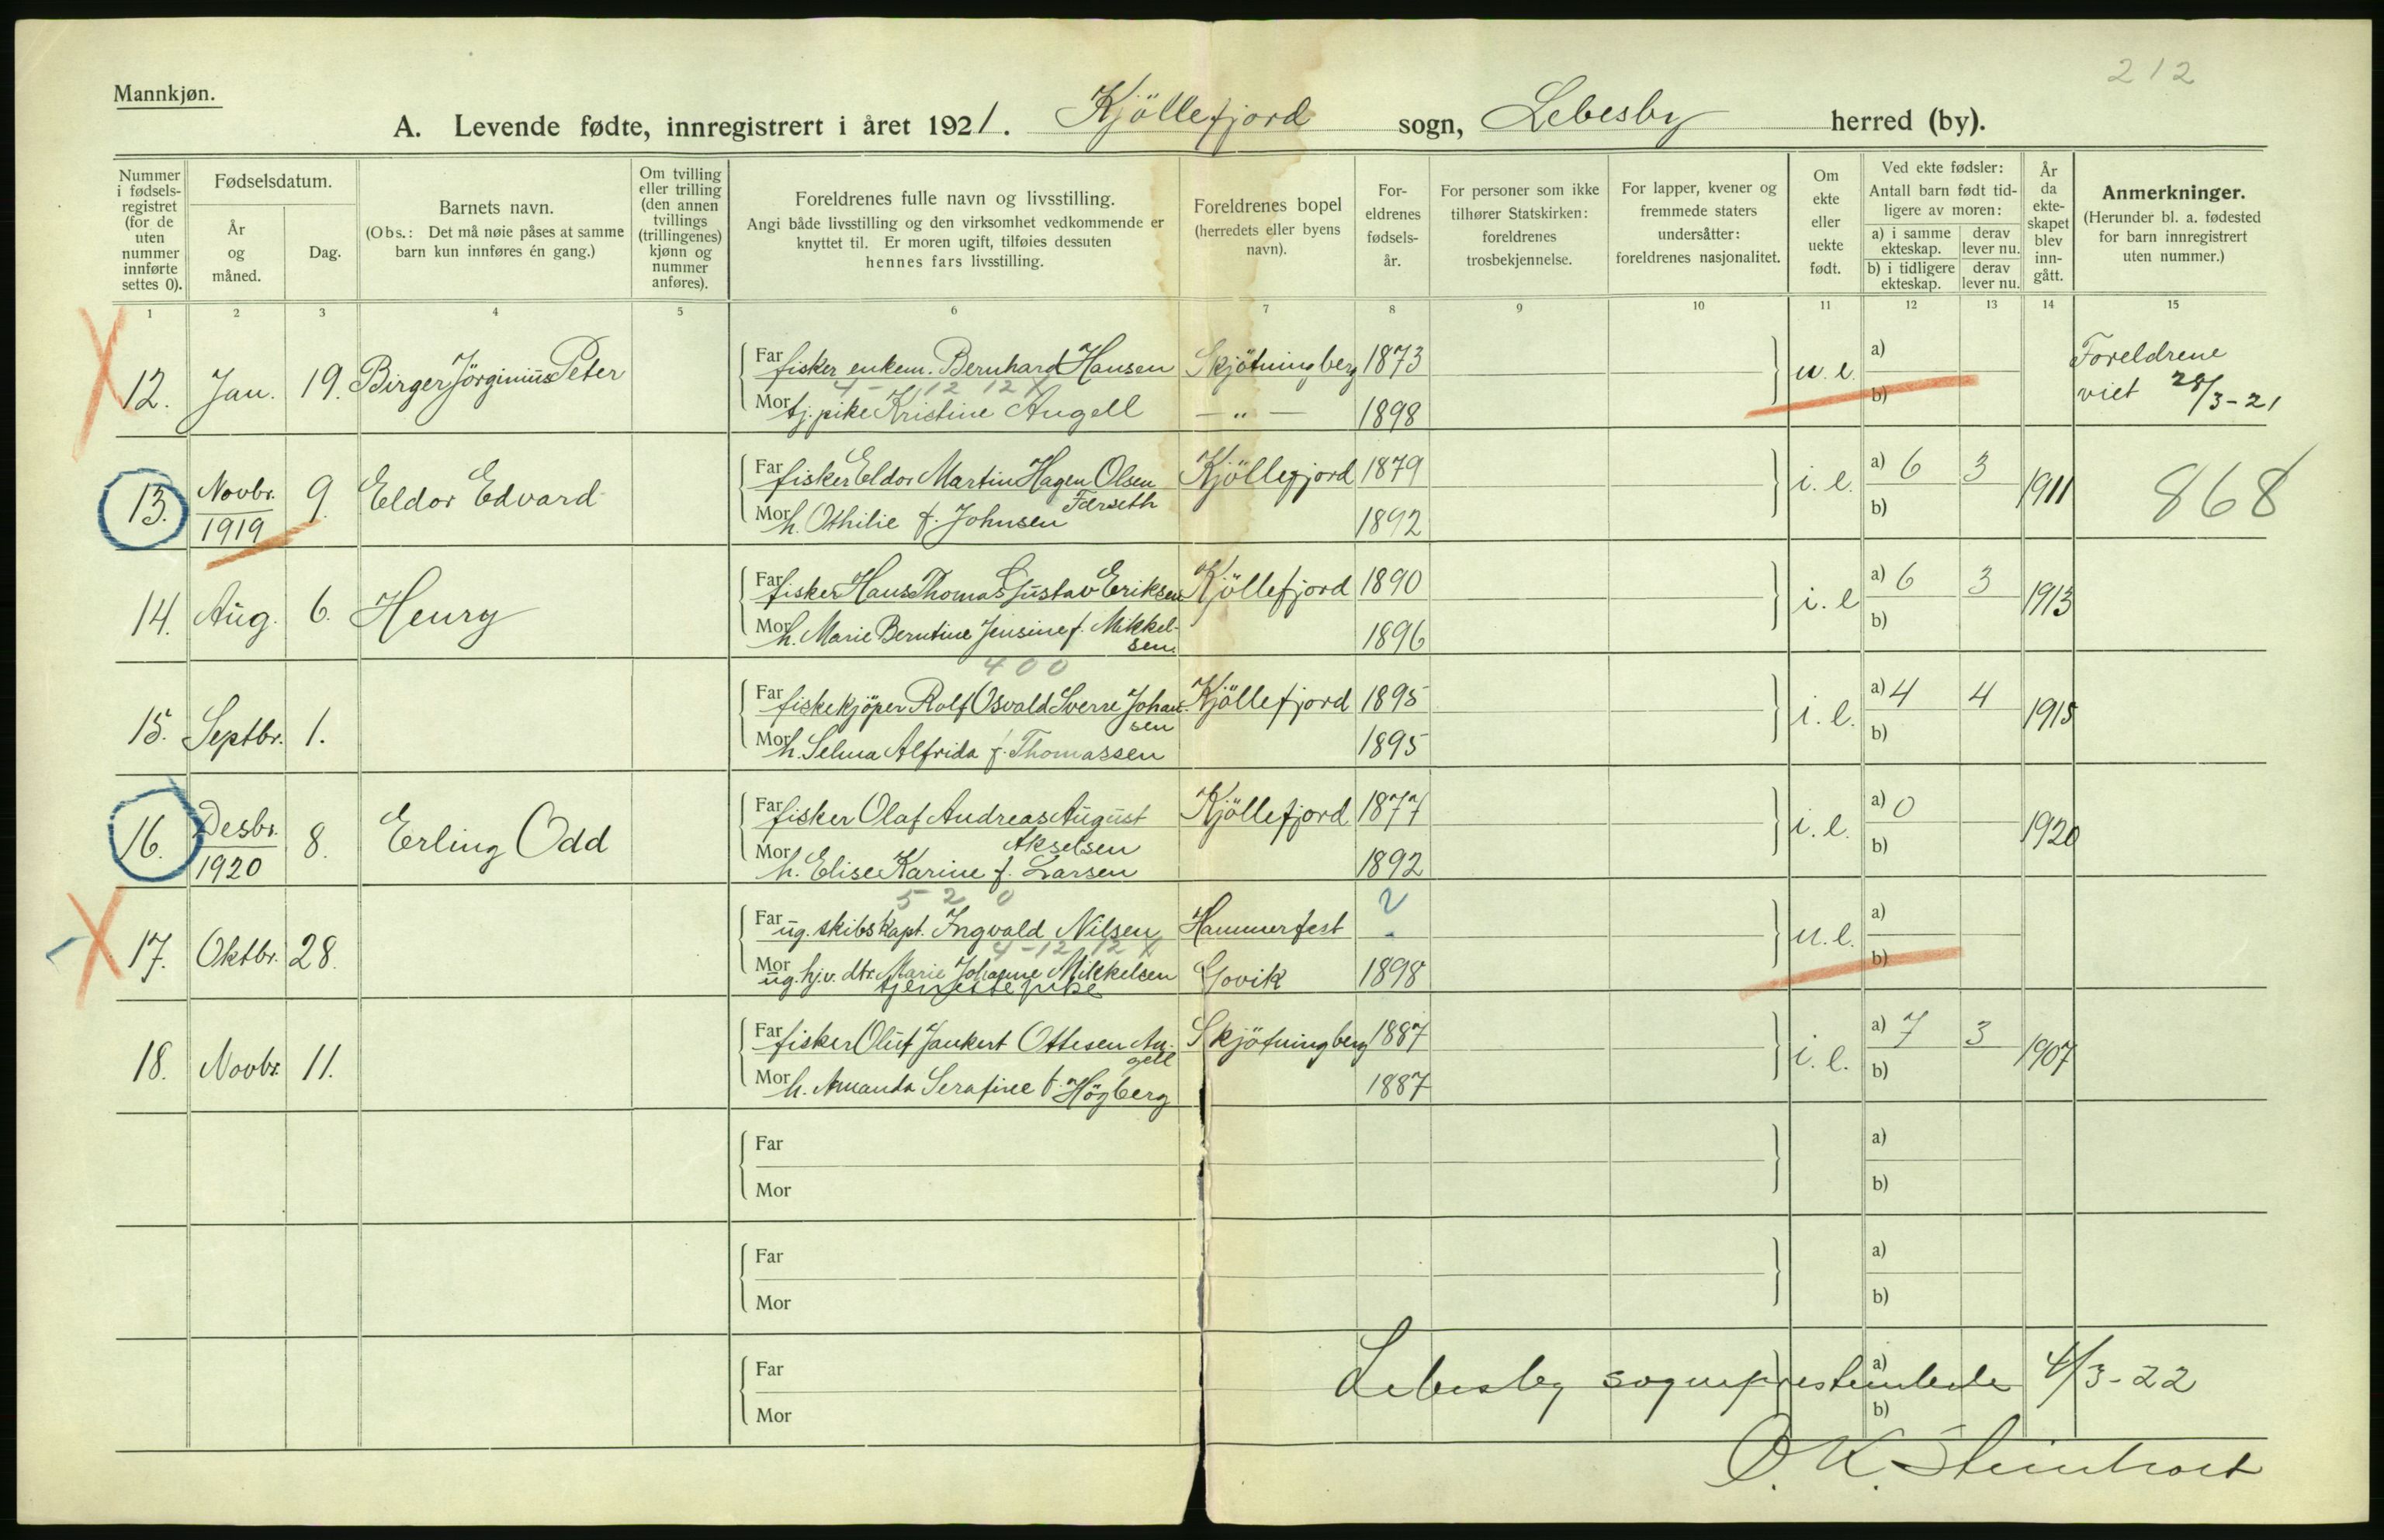 212
Mannkjøn.
A. Levende fødte, innregistrert i året 1921. Kjöllefjord sogn, Lebesby herred (by).
Nummer i fødsels-registret (for de uten nummer innførte settes 0).
Fødselsdatum.
År og måned.
Dag.
Barnets navn.
(Obs.: Det må nøie påses at samme barn kun innføres én gang.)
Om tvilling eller trilling (den annen tvillings (trillingenes) kjønn og nummer anføres).
Foreldrenes fulle navn og livsstilling.
Angi både livsstilling og den virksomhet vedkommende er knyttet til. Er moren ugift, tilføies dessuten hennes fars livsstilling.
Foreldrenes bopel (herredets eller byens navn).
For-eldrenes fødsels-år.
For personer som ikke tilhører Statskirken: foreldrenes trosbekjennelse.
For lapper, kvener og fremmede staters undersåtter: foreldrenes nasjonalitet.
Om ekte eller uekte født.
Ved ekte fødsler: Antall barn født tid-ligere av moren:
a) i samme ekteskap. derav lever nu.
b) i tidligere ekteskap. derav lever nu.
År da ekte-skapet blev inn-gått.
Anmerkninger.
(Herunder bl. a. fødested for barn innregistrert uten nummer.)
1 2 3 4 5 6 7 8 9 10 11 12 13 14 15
12. Jan. 19. Birger Jörginius Peter
Far fisker enkem. Bernhard Hansen Skjötningberg 1873
4 - 12 12 X
Mor tj. pike Kristine Angell — „ — 1898
u. e. a) b)
Foreldrene viet 28/3-21
13. Novbr. 1919 9. Eldor Edvard
Far fisker Eldor Martin Hagen Olsen Kjöllefjord 1879
Færseth
Mor h. Othilie f. Johnsen 1892
i. e. a) 6 3 b) 1911 868
14. Aug. 6. Henry
Far fisker Hans Thomas Gustav Eriksen Kjöllefjord 1890
Mor h. Marie Berntine Jensine f. Mikkel-sen. 1896
i. e. a) 6 3 b) 1913
400
15. Septbr. 1.
Far fiskekjöper Rolf Osvald Sverre Johan-sen Kjöllefjord 1895
Mor h. Selma Alfrida f. Thomassen 1895
i. e. a) 4 4 b) 1915
16. Desbr. 1920 8. Erling Odd
Far fisker Olaf Andreas August Akselsen Kjöllefjord 1877
Mor h. Elise Karine f. Larsen 1892
i. e. a) 0 b) 1920
5 2 0
17. Oktbr. 28.
Far ug. skibskapt. Ingvald Nilsen Hammerfest ?
4-12 12 X
Mor ug. hjv. dtr. Marie Johanne Mikkelsen Govik 1898
tjenestepike
u. e. a) b)
18. Novbr. 11.
Far fisker Oluf Jankert Ottesen An-gell Skjötningberg 1887
Mor h. Amanda Serafine f. Högberg 1887
i. e. a) 7 3 b) 1907
Far
Mor
a)
b)
Far
Mor
a)
b)
Far
Mor
a)
b)
Lebesby sogneprestembede 4/3-22
O. K. Steinholt